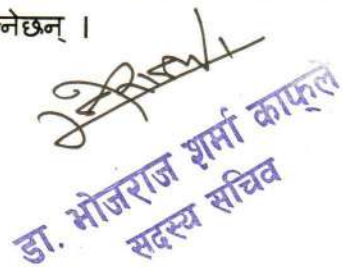 नेछन् ।
डा. भोजराज शर्मा काफ्ले
सदस्य सचिव